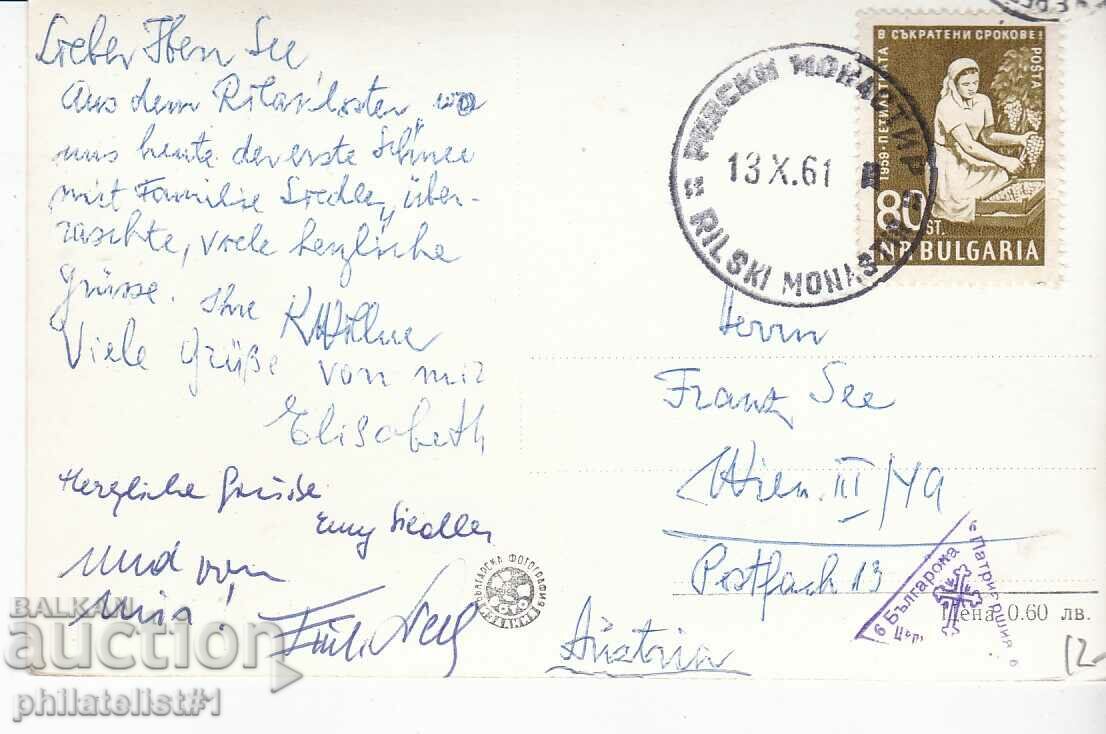 Lieber Herr See
Aus dem Rilakloster, wo
uns heute der erste Schnee
mit Familie Siedler, über-
raschte, viele herzliche
Grüsse. Ihre
Viele Grüße von mir
Elisabeth
Herzliche Grüße
Emy Siedler
Und von
mir!
Herrn
Franz See
Wien III/49
Postfach 13
Austria
РИЛСКИ МОНАСТИР
13 X.61
RILSKI MONASTIR
1959-ПЕТИЛЕТКАТА В СЪКРАТЕНИ СРОКОВЕ!
POŠTA
80 ST.
N.R. BULGARIA
БЪЛГАРСКА ФОТОГРАФИЯ
Българска Патриаршия
Цена 0.60 лв.
BALKAN
auction
philatelist#1